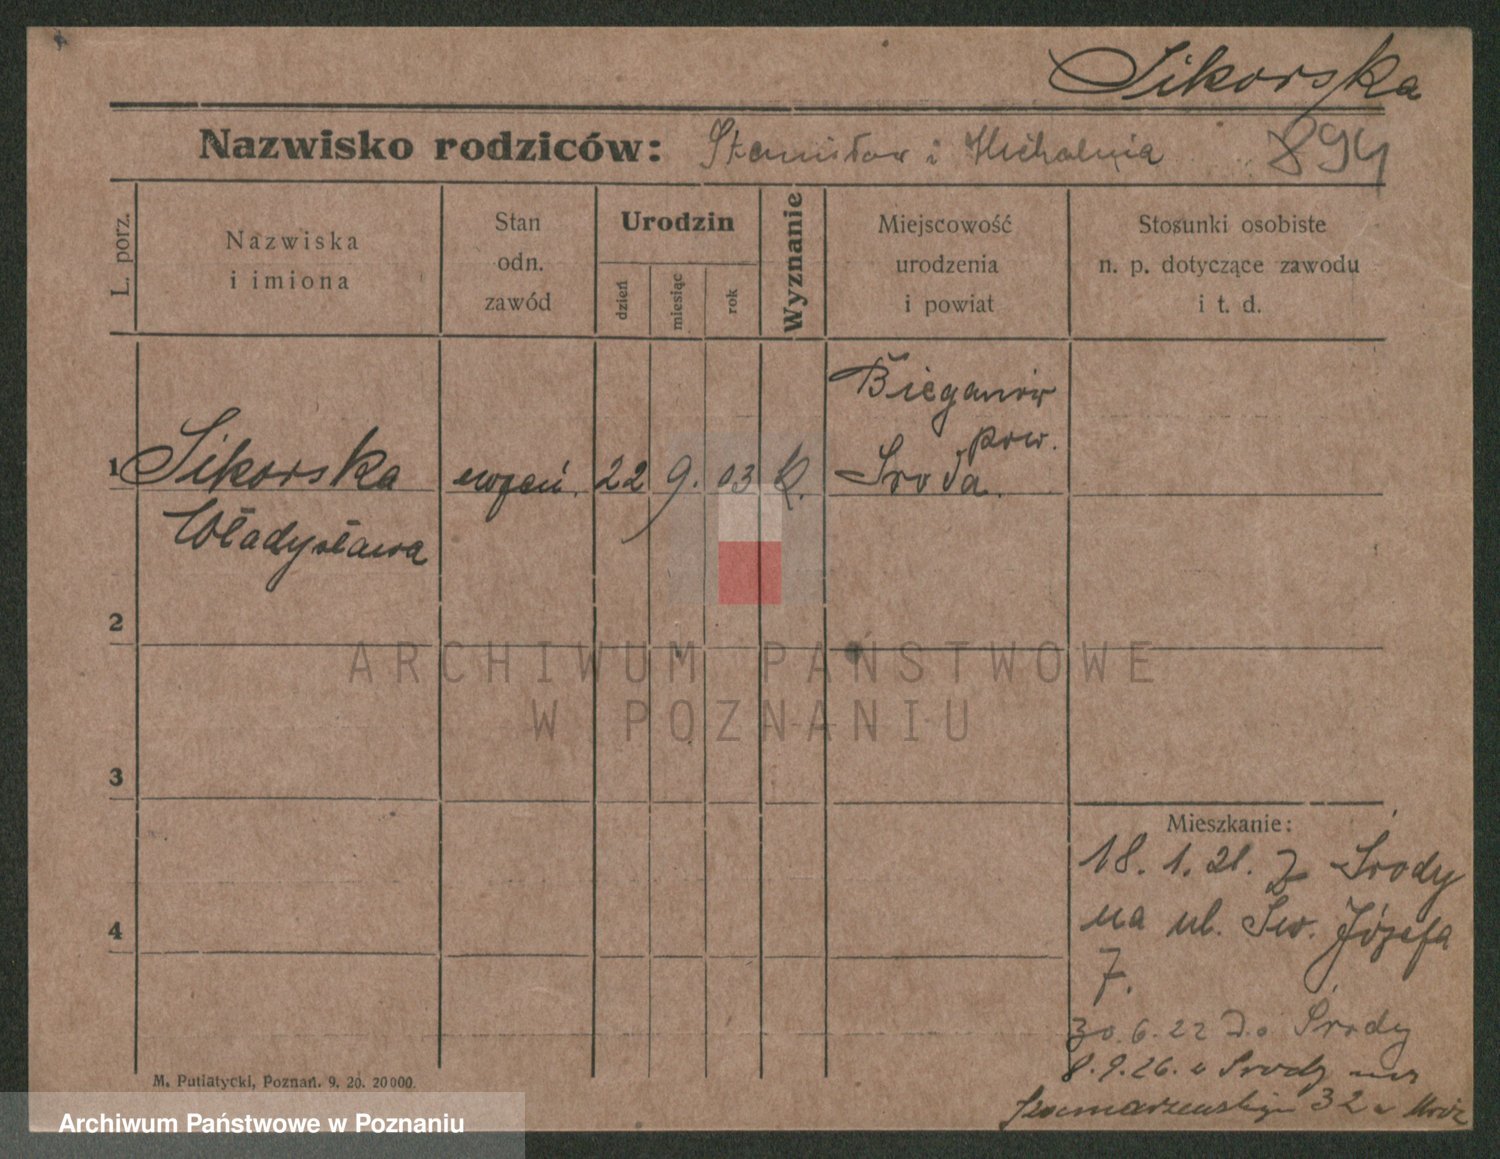 Sikorska
Nazwisko rodziców: Stanisław i Michalina 894
L. porz.
Nazwiska
i imiona
Stan
odn.
zawód
Urodzin
dzień
miesiąc
rok
Wyznanie
Miejscowość
urodzenia
i powiat
Stosunki osobiste
n. p. dotyczące zawodu
i t. d.
1 Sikorska
Władysława
uczeń.
22 9. 03 K.
Bieganów
pow.
Środa.
2
3
4
ARCHIWUM PAŃSTWOWE
W POZNANIU
Mieszkanie:
18. 1. 21. z Środy
na ul. Św. Józefa
7.
30. 6. 22 Do Środy
8. 9. 26. z Środy
32
M. Putiatycki, Poznań. 9. 20. 20000.
Archiwum Państwowe w Poznaniu